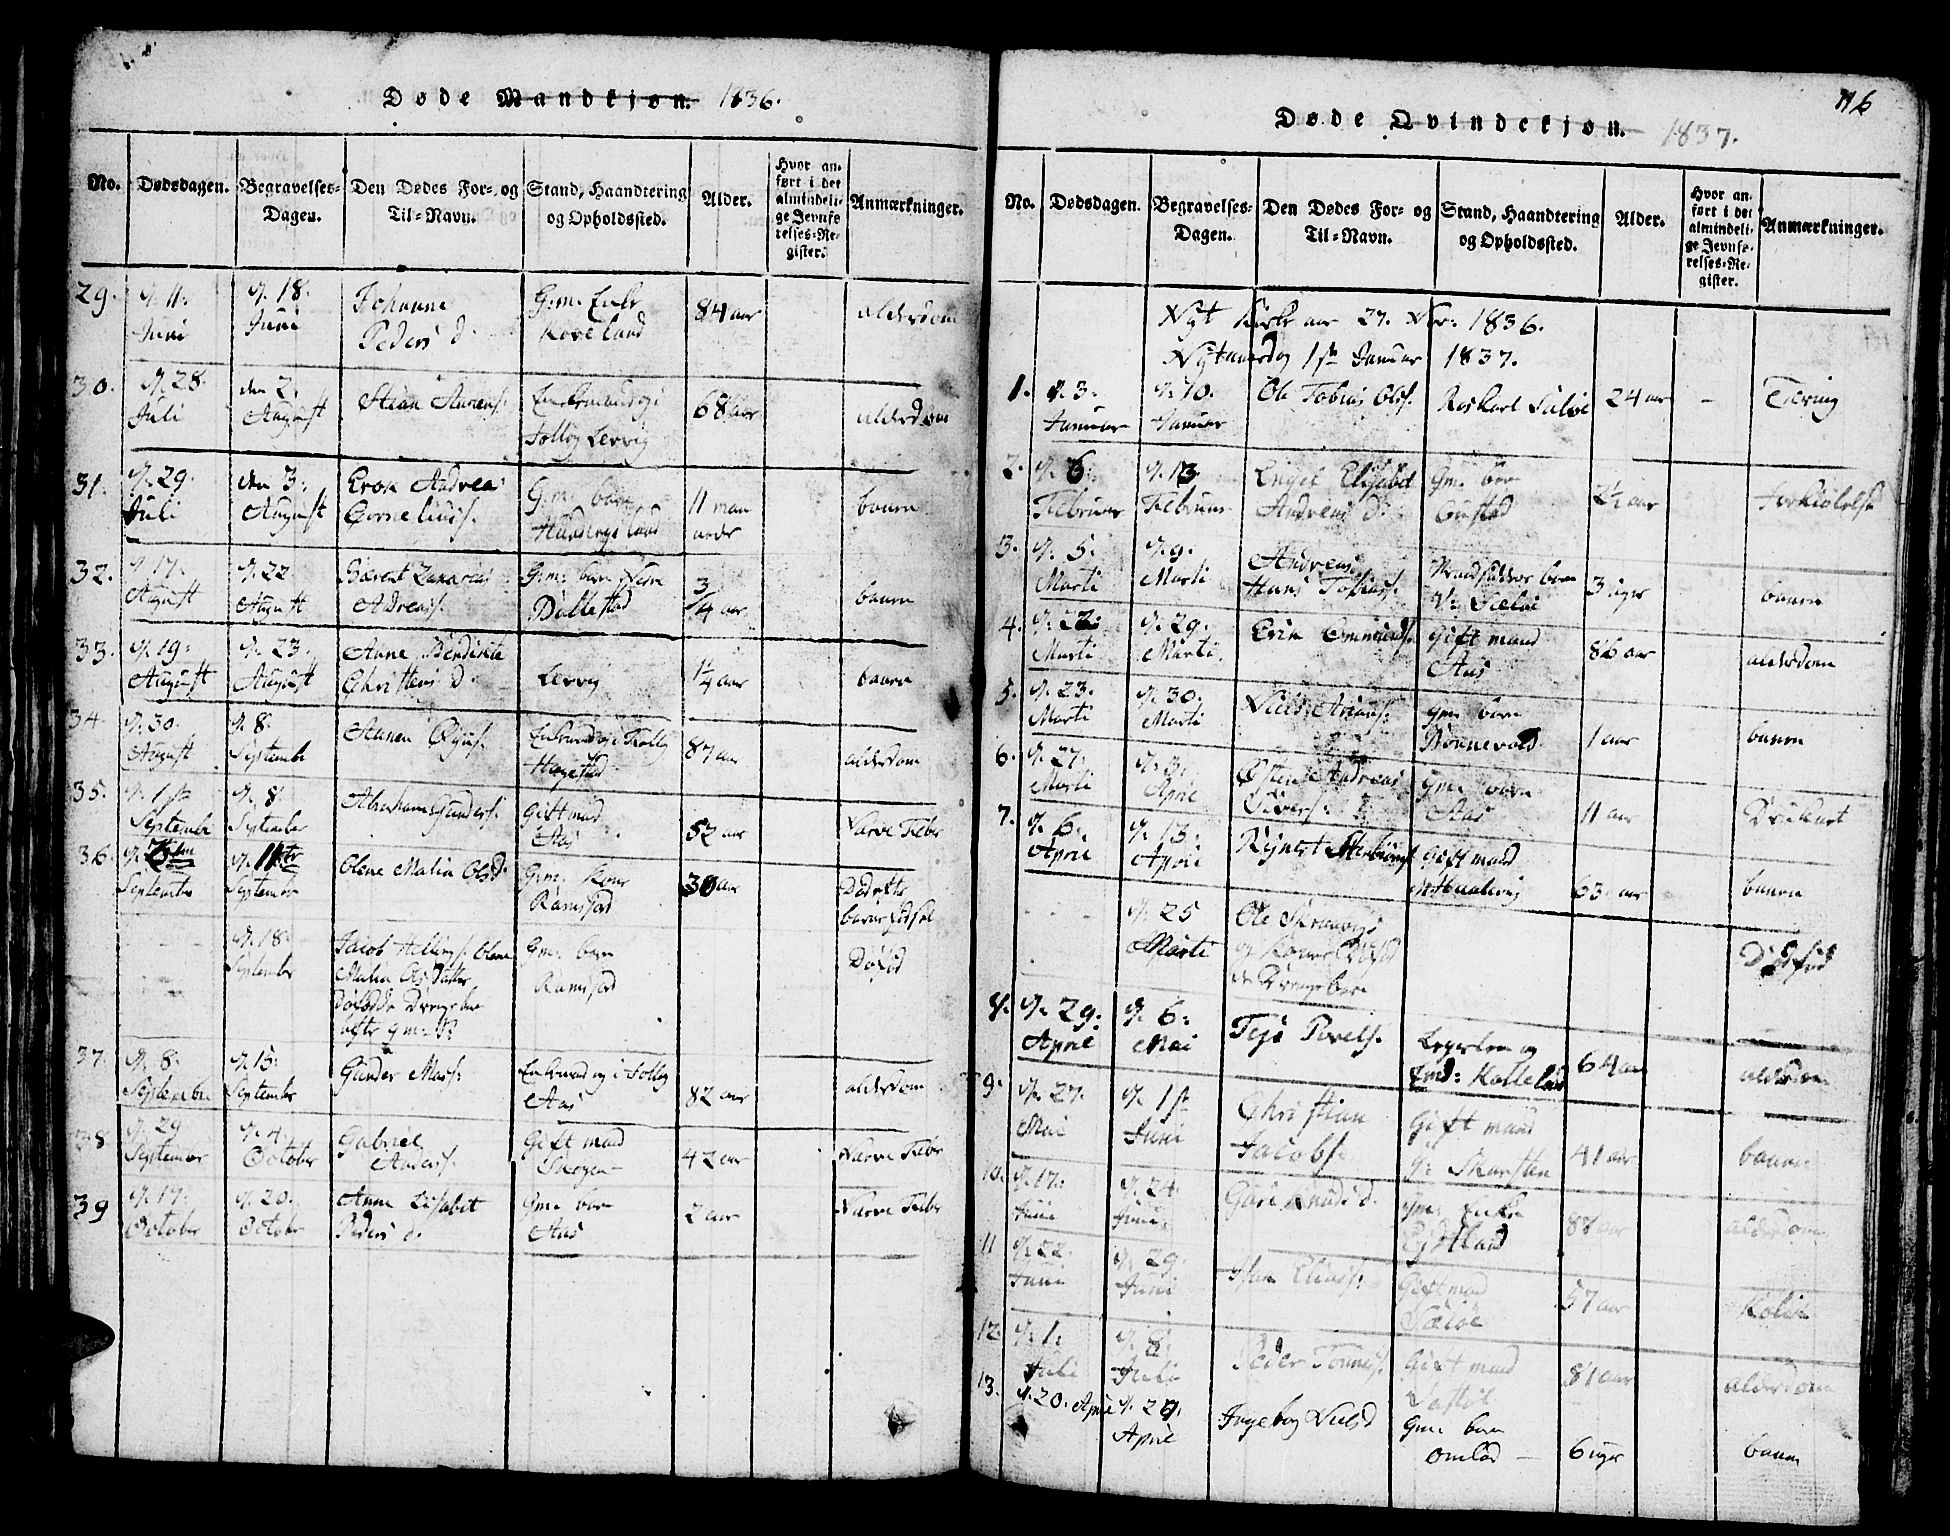 Døde Mandkjøn. 1836.
No. Dødsdagen. Begravelses-Dagen. Den Dødes For- og Til-Navn. Stand, Haandtering og Opholdssted. Alder. Hvor anført i det almindelige Jevnførelses-Register. Anmærkninger.
29. d. 11. Juni d. 18. Juni Johanne Peders d. G.m. Enke Koveland 84 aar alderdom
30. d. 28. Juli den 2. August Enkemand og i Follog Lervig 68 aar alderdom
31. d. 29. Juli den 3. August Andreas Cornelius s. G.m. barn 11 maaneder baaren
32. d. 17. August d. 22 August Zakarias Adreas s. G.m. barn Døllestad 3/4 aar baaren
33. d. 19. August d. 23. August Anne Bendikte Christens d. Lervig 1/4 aar baaren
34. d. 30. August d. 8. September Aanen Enkemand og i Follog Hagestad 87 aar alderdom
35. d. 1ste September d. 8. September Abraham Gunders. Gift mand Aas 52 aar Narve Feber
36. September d. 11te September Olene Malia Olsd. G.m. kone Ramsfod 30 aar Død efter barnefødsel
d. 18. September Jacob Olene Malia Ols datter dødfødde Drengebarn G.m. barn Ramsfod Døfød
37. d. 8. September d. 15. September Gunder Mass. Enkemand og i Follog Aas 82 aar alderdom
38 d. 29 September d. 4. October Gabriel Anders s. Gift mand Skogen 42 aar Narve Feber
39 d. 17. October d. 20. October Anne Lisabet Peders d. Gm. barn Aas 2 aar Narve Feber
116
Døde Qvindekjøn. 1837.
No. Dødsdagen. Begravelses-Dagen. Den Dødes For- og Til-Navn. Stand, Haandtering og Opholdssted. Alder. Hvor anført i det almindelige Jevnførelses-Register. Anmærkninger.
Nyt Kirke aar 27. Nov: 1836.
Nytaarsdag 1ste Januar 1837.
1. d. 3. Januar d. 10. Januar Ole Tobias Ols s. Seløe 24 aar - Tæring
2. d. 6. Februar d. 13 Februar Elisabet Andreas d. Gm. barn aar Forkiølelse
3. d. 5. Marti d. 9. Marti Andreas Hans Tobias s. barn V: Sæløe 3 uger baaren
4. d. 22. Marti d. 29. Marti Erik Omunds. gift mand Aas 86 aar alderdom
5. d. 23. Marti d. 30. Marti Niels gm. barn 1 aar baaren
6. d. 27. Marti d. 3. April Østen Andreas Sivers. Gm. barn Aas 11 aar
7. d. 6. April d. 13. April Rejnert gift mand 63 aar baaren
d. 25 Marti Ole og kones Døfødde Drengebarn Dødfød
8. d. 29. April d. 6. Mai Tejs Povels. 64 aar alderdom
9. d. 27. Mai d. 1ste Juni Christian Jacobs. Gift mand Skarsten 41 aar baaren
10. d. 17. Juni d. 24. Juni Guri Knuds d. gm. Enke 88 aar alderdom
11 d. 22. Juni d. 29. Juni Elias s. Gift mand Sæløe 57 aar Kolik
12. d. 1. Juli d. 8. Juli Peder Tønnes s. Gift mand 81 aar alderdom
13. d. 20. April d. 27. April Ingebog Nielsd Gm. barn Omlad 6 uger baaren